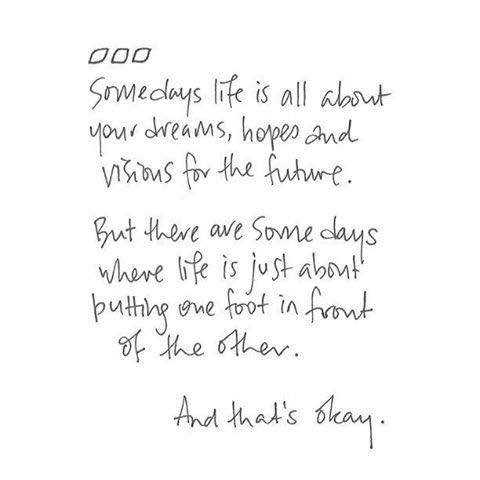 Somedays life is all about
your dreams, hopes and
visions for the future.
But there are some days
where life is just about
putting one foot in front
of the other.
And that's okay.